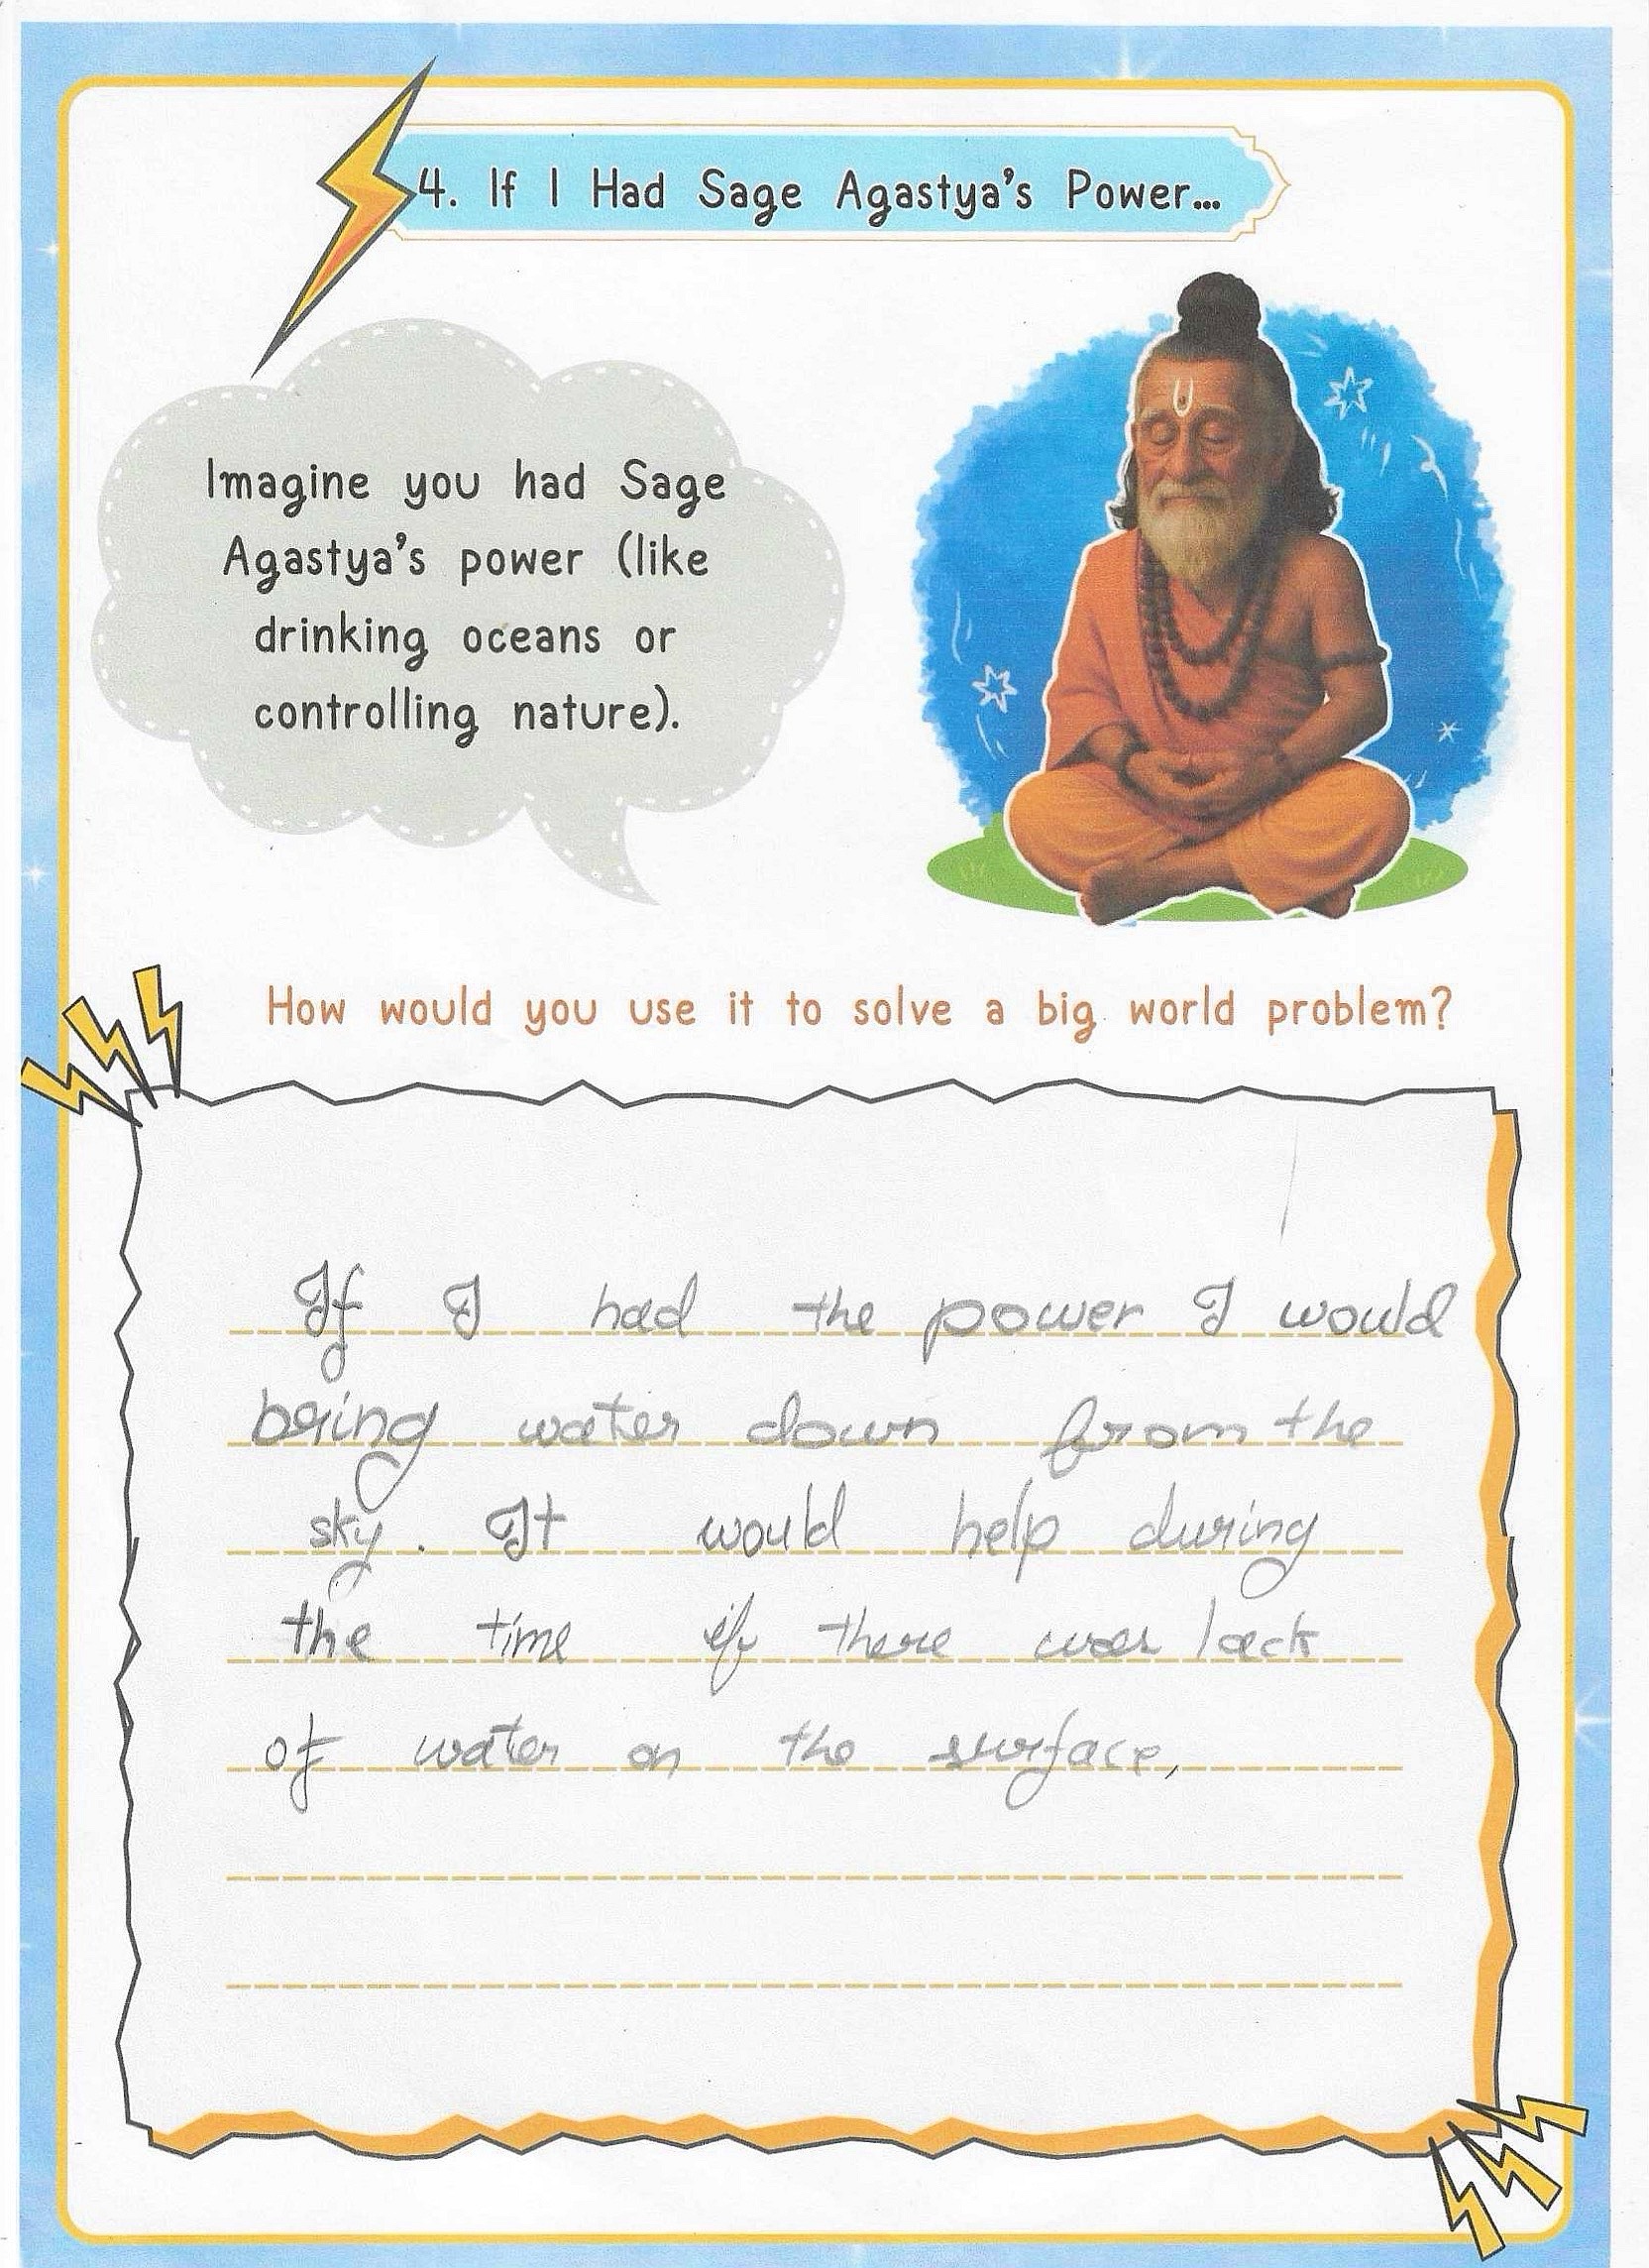 4. If I Had Sage Agastya's Power...
Imagine you had Sage
Agastya's power (like
drinking oceans or
controlling nature).
How would you use it to solve a big world problem?
If I had the power I would
bring water down from the
sky. It would help during
the time if there was lack
of water on the surface,